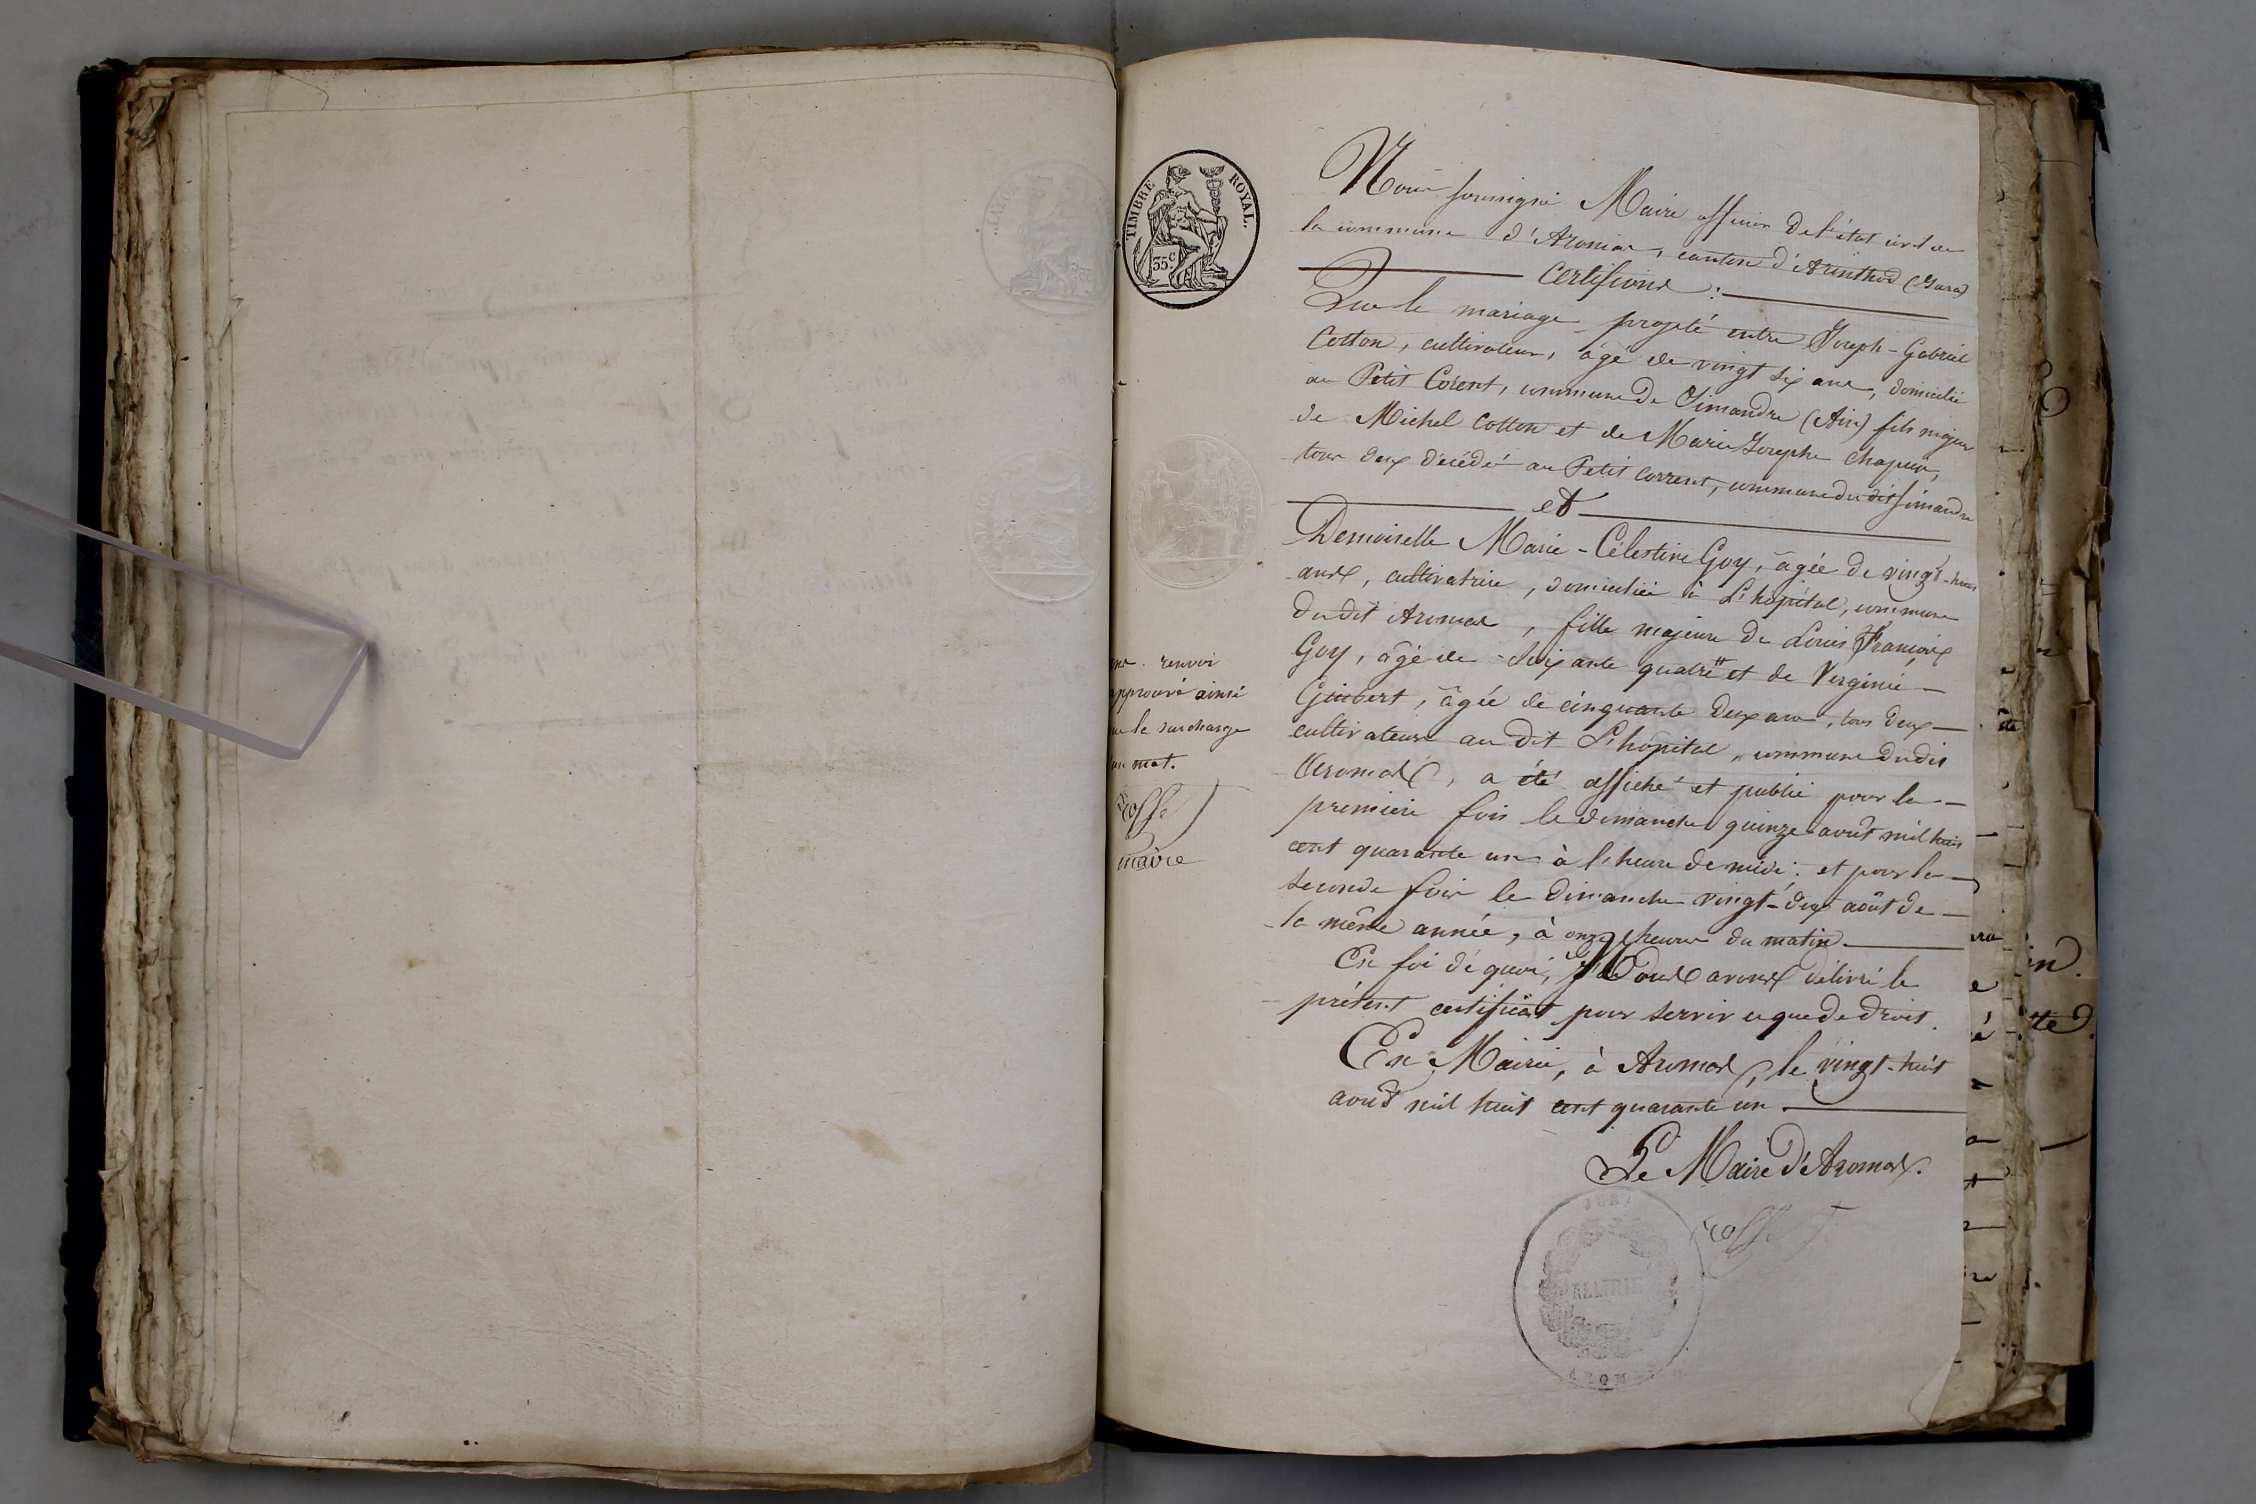 TIMBRE ROYAL.
35c
Nous soussigné Maire officier de l'état civil de
la commune d'Aromas, canton d'Arinthod (Jura)
Certifions :
Que le mariage projeté entre Joseph-Gabriel
Cotton, cultivateur, âgé de vingt six ans, domicilié
au Petit Corent, commune de Simandre (Ain) fils majeur
de Michel Cotton et de Marie Josephe Chapuis,
tous deux décédé au Petit Corrent, commune du dit Simandre
et
Demoiselle Marie-Célestine Goy, âgée de vingt-huit
ans, cultivatrice, domiciliée à L'hôpital, commune
du dit Aromas, fille majeure de Louis François
Goy, âgé de soixante quatre et de Verginie
Guibert, âgée de cinquante deux ans, tous deux
cultivateurs au dit L'hôpital, commune du dit
Aromas, a été affiché et publié pour la
premiere fois le dimanche quinze août mil huit
cent quarante un à l'heure de midi; et pour la
seconde fois le dimanche vingt-deux août de
la même année, à onze heures du matin.
En foi de quoi, Nous avons délivré le
présent certificat pour servir ce que de droit.
En Mairie, à Aromas, le vingt-huit
août mil huit cent quarante un.
Le Maire d'Aromas.
renvoi
approuvé ainsi
que la surcharge
mot.
maire
JURA
MAIRIE
AROMAS